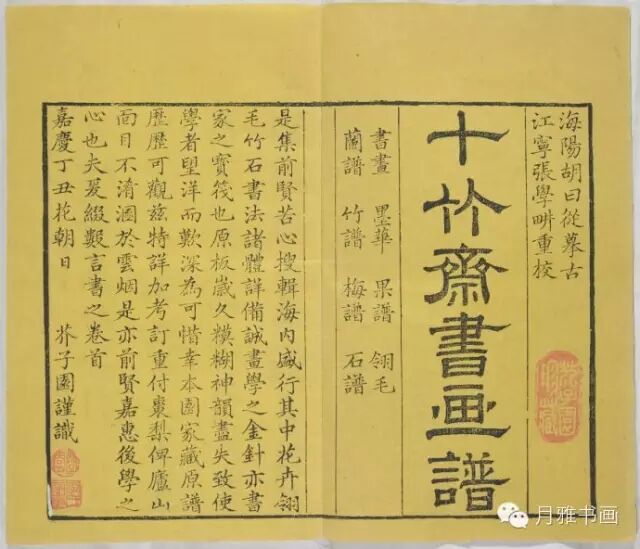 海陽胡曰從摹古
江寧張學畊重校
十竹齋書画譜
書畫 墨華 果譜 翎毛
蘭譜 竹譜 梅譜 石譜
是集前賢苦心搜輯海內盛行其中花卉翎
毛竹石書法諸體詳備誠畫學之金針亦書
家之寶筏也原板歲久糢糊神韻盡失致使
學者望洋而歎深為可惜幸本園家藏原譜
歷歷可觀茲特詳加考訂重付棗梨俾廬山
面目不淆溷於雲烟是亦前賢嘉惠後學之
心也夫爰綴數言書之卷首
嘉慶丁丑花朝日 芥子園謹識
月雅书画